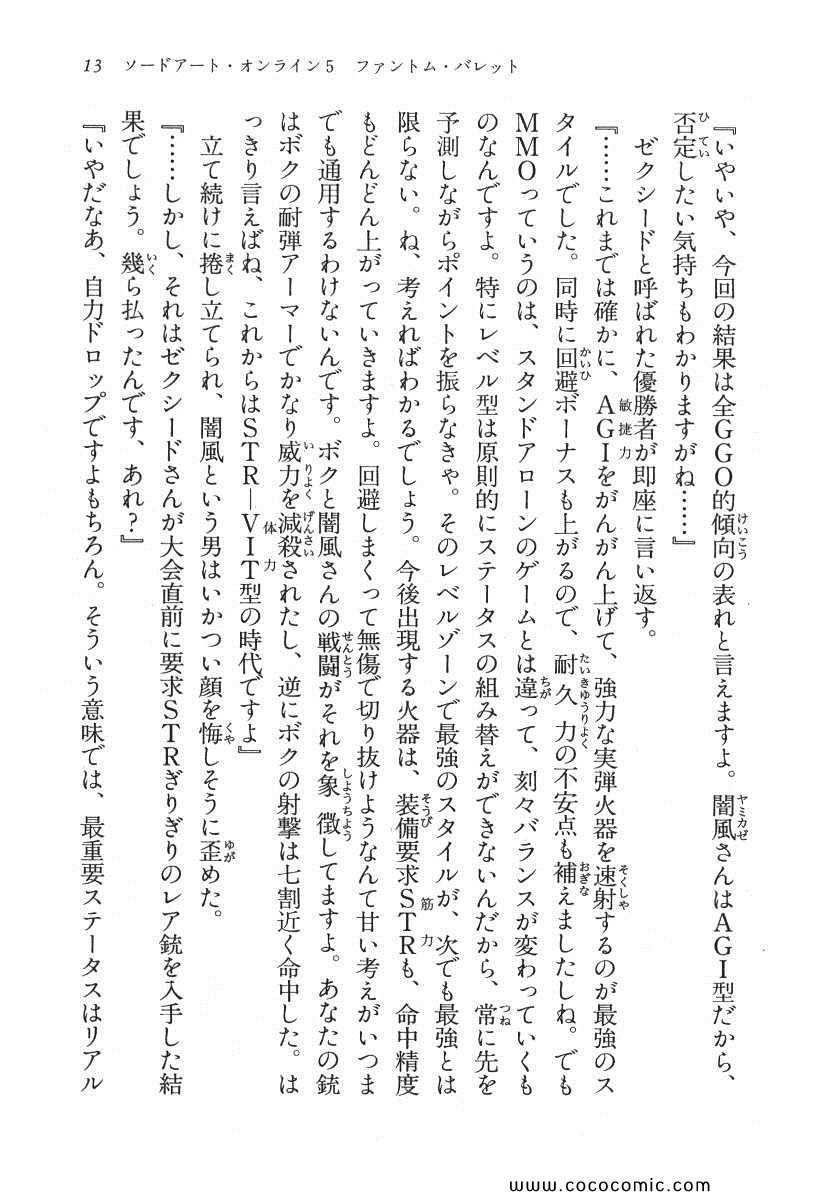 13　ソードアート・オンライン5　ファントム・バレット
『いやいや、今回の結果は全GGO的傾向の表れと言えますよ。闇風さんはAGI型だから、
否定したい気持ちもわかりますがね……』
　ゼクシードと呼ばれた優勝者が即座に言い返す。
『……これまでは確かに、AGIをがんがん上げて、強力な実弾火器を速射するのが最強のス
タイルでした。同時に回避ボーナスも上がるので、耐久力の不安点も補えましたしね。でも
MMOっていうのは、スタンドアローンのゲームとは違って、刻々バランスが変わっていくも
のなんですよ。特にレベル型は原則的にステータスの組み替えができないんだから、常に先を
予測しながらポイントを振らなきゃ。そのレベルゾーンで最強のスタイルが、次でも最強とは
限らない。ね、考えればわかるでしょう。今後出現する火器は、装備要求STRも、命中精度
もどんどん上がっていきますよ。回避しまくって無傷で切り抜けようなんて甘い考えがいつま
でも通用するわけないんです。ボクと闇風さんの戦闘がそれを象徴してますよ。あなたの銃
はボクの耐弾アーマーでかなり威力を減殺されたし、逆にボクの射撃は七割近く命中した。は
っきり言えばね、これからはSTR―VIT型の時代ですよ』
　立て続けに捲し立てられ、闇風という男はいかつい顔を悔しそうに歪めた。
『……しかし、それはゼクシードさんが大会直前に要求STRぎりぎりのレア銃を入手した結
果でしょう。幾ら払ったんです、あれ？』
『いやだなあ、自力ドロップですよもちろん。そういう意味では、最重要ステータスはリアル
www.cococomic.com